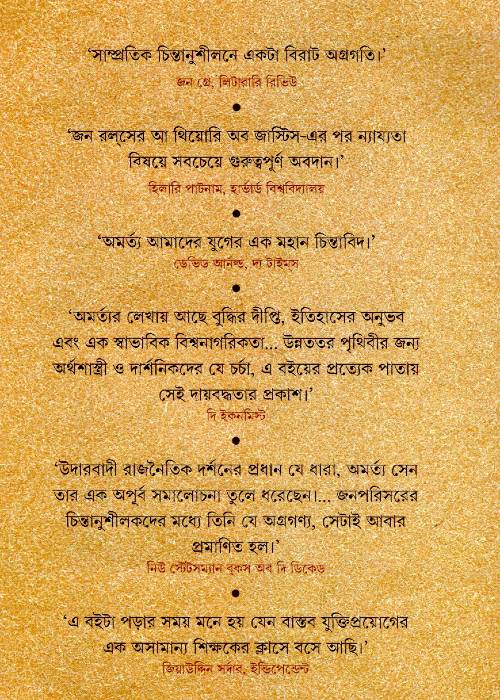 ‘সাম্প্রতিক চিন্তানুশীলনে একটা বিরাট অগ্রগতি।’
জন গ্রে, লিটারারি রিভিউ
‘জন রলসের আ থিয়োরি অব জাস্টিস-এর পর ন্যায্যতা
বিষয়ে সবচেয়ে গুরুত্বপূর্ণ অবদান।’
হিলারি পাটনাম, হার্ভার্ড বিশ্ববিদ্যালয়
‘অমর্ত্য আমাদের যুগের এক মহান চিন্তাবিদ।’
ডেভিড আর্নল্ড, দ্য টাইমস
‘অমর্ত্যর লেখায় আছে বুদ্ধির দীপ্তি, ইতিহাসের অনুভব
এবং এক স্বাভাবিক বিশ্বনাগরিকতা... উন্নততর পৃথিবীর জন্য
অর্থশাস্ত্রী ও দার্শনিকদের যে চর্চা, এ বইয়ের প্রত্যেক পাতায়
সেই দায়বদ্ধতার প্রকাশ।’
দি ইকনমিস্ট
‘উদারবাদী রাজনৈতিক দর্শনের প্রধান যে ধারা, অমর্ত্য সেন
তার এক অপূর্ব সমালোচনা তুলে ধরেছেন।... জনপরিসরের
চিন্তানুশীলকদের মধ্যে তিনি যে অগ্রগণ্য, সেটাই আবার
প্রমাণিত হল।’
নিউ স্টেটসম্যান বুকস অব দি ডিকেড
‘এ বইটা পড়ার সময় মনে হয় যেন বাস্তব যুক্তিপ্রয়োগের
এক অসামান্য শিক্ষকের ক্লাসে বসে আছি।’
জিয়াউদ্দিন সর্দার, ইন্ডিপেন্ডেন্ট